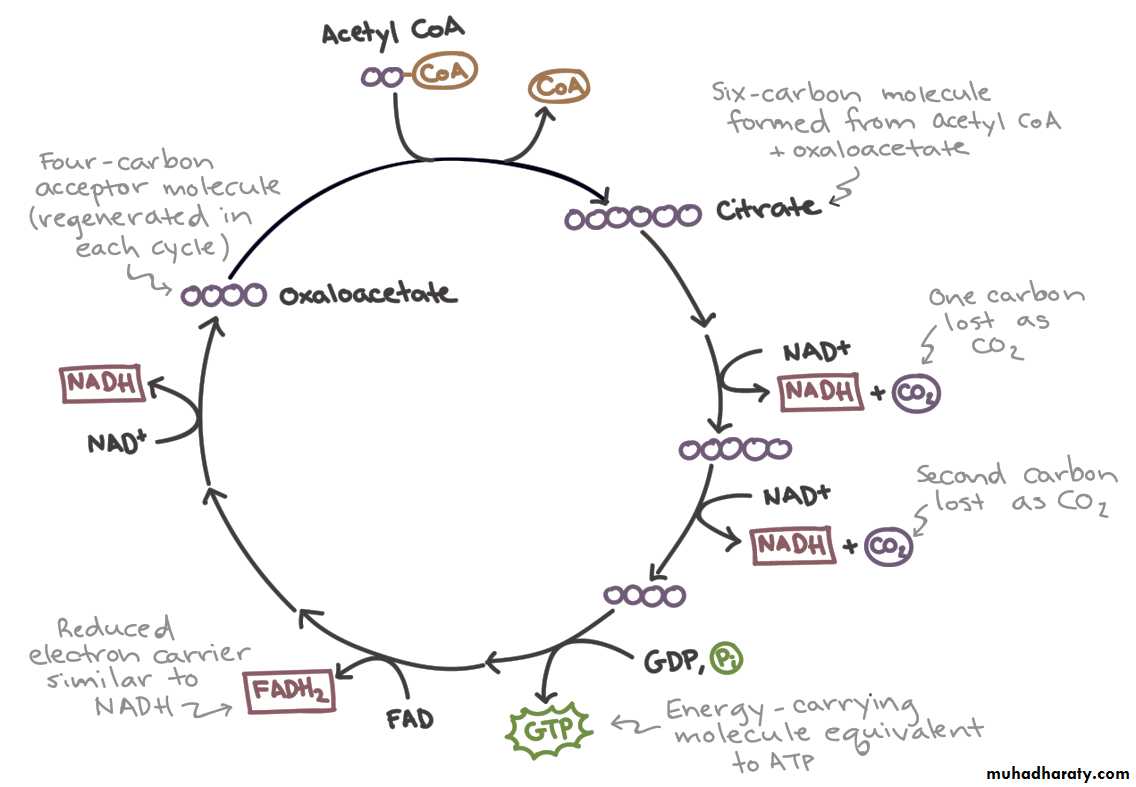 Acetyl CoA
CoA
CoA
Six-carbon molecule
formed from acetyl CoA
+ oxaloacetate
Four-carbon
acceptor molecule
(regenerated in
each cycle)
Citrate
Oxaloacetate
One carbon
lost as
CO2
NAD+
NADH + CO2
NADH
NAD+
Second carbon
lost as CO2
NAD+
NADH + CO2
Reduced
electron carrier
similar to
NADH
FADH2
FAD
GDP, Pi
GTP
Energy-carrying
molecule equivalent
to ATP
muhadharaty.com